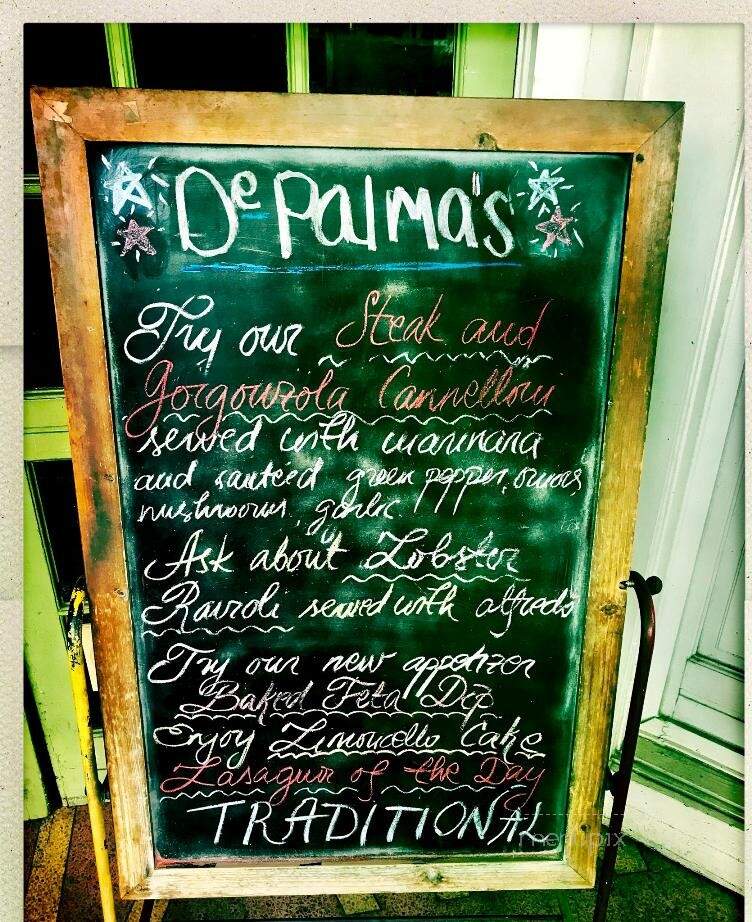 De Palma's
Try our Steak and
Gorgonzola Cannelloni
served with marinara
and sauteed green pepper, onions,
mushrooms, garlic
Ask about Lobster
Ravioli served with alfredo
Try our new appetizer
Baked Feta Dip
Enjoy Limoncello Cake
Lasagna of the Day
TRADITIONAL
menupix